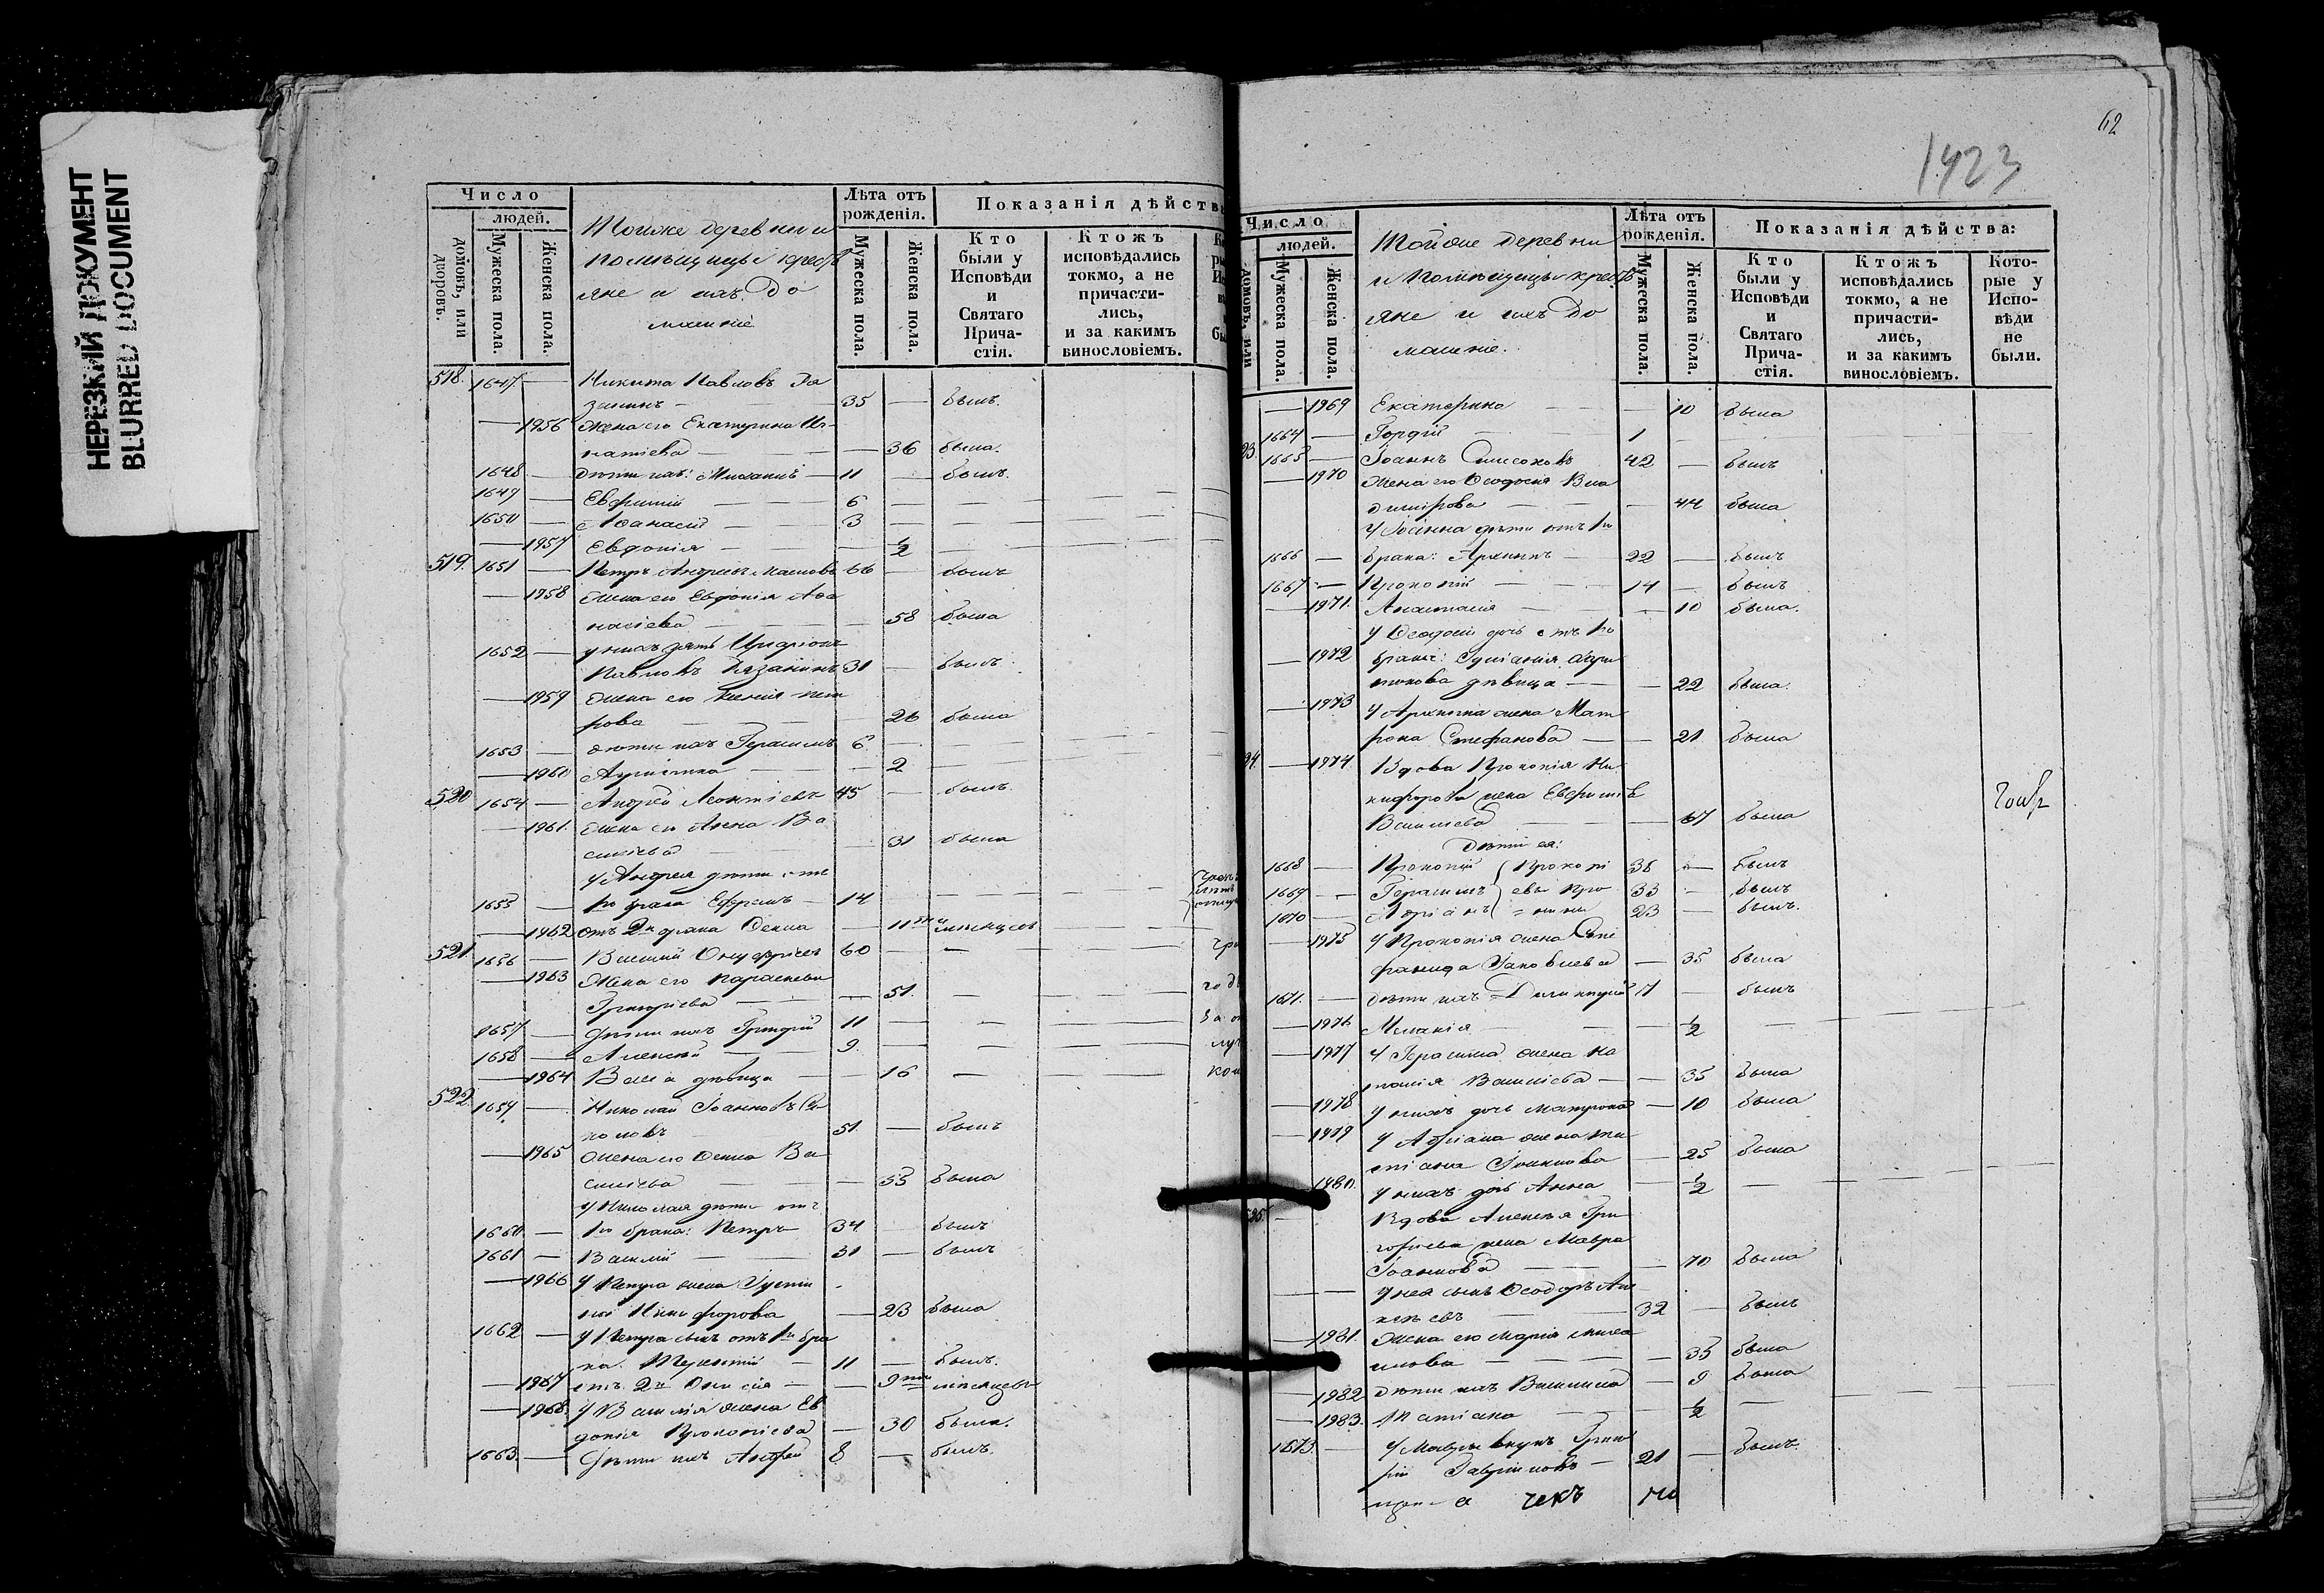 НЕРЕЗКИЙ ДОКУМЕНТ
BLURRED DOCUMENT
Число
людей.
домовъ, или дворовъ.
Мужеска пола.
Женска пола.
Тойже деревни и
помѣщицы крестья
яне и ихъ до
машніе
Лѣта отъ рожденія.
Мужеска пола.
Женска пола.
Показанія дѣйств
Кто были у Исповѣди и Святаго Прича-стія.
Ктожъ исповѣдались токмо, а не причасти-лись, и за какимъ винословіемъ.
518. 1647 — Никита Павловъ Ря
занинъ — 35 — былъ.
— 1956 жена его Екатерина Иг
натіева — — 36 была.
1648 — дѣти ихъ: Михаилъ — 11 — былъ.
1649 — Евфимій — 6 — —
1650 — Аѳанасій — 3 — —
— 1957 Евдокія — — ½ —
519. 1651 — Петръ Андреевъ 66 — былъ
— 1958 жена его Евдокія Аѳа
насіева — 58 была
1652 — у нихъ зять
Павловъ Рязанинъ 31 — былъ
— 1959 жена его Пет
рова — 26 была
1653 — дѣти ихъ Герасимъ 6 —
— 1960 — 2 —
520 1654 — Андрей Леонтіевъ 45 — былъ.
— 1961. жена его Анна Ва
силіева — 31 была
у Андрея дѣти отъ
1655 — 1го брака Ефремъ — 14 — —
— 1962 отъ 2го брака — 11ти мѣсяцевъ
521 1656 — Василій Онуфріевъ 60 — —
— 1963 Жена его Параскева
Григоріева — — 51. —
1657 — дѣти ихъ Григорій 11 — —
1658 — Алексѣй — 9. — —
— 1964 дѣвица — 16 —
522. 1659 — Николай Іоанновъ
51. — былъ
— 1965 жена его Ва
силіева — — 53 была
у Николая дѣти отъ
1660 — 1го брака: Петръ 34 — былъ
1661 — Василій — 31 — былъ
— 1966 у Петра жена Іусти
Никифорова — 23 была
1662 — у Петра сынъ отъ 1го бра
ка. Терентій — 11 — былъ.
— 1967 отъ 2го — — 9ти мѣсяцевъ
— 1968. у Василія жена Ев
докія Прокопіева — 30 была.
1663. — Дѣти ихъ Андрей 8 — былъ.
62
1423
Число
людей.
домовъ, или
Мужеска пола.
Женска пола.
Тойже деревни
и помѣщицы крестья
яне и ихъ до
машніе.
Лѣта отъ рожденія.
Мужеска пола.
Женска пола.
Показанія дѣйства:
Кто были у Исповѣди и Святаго Прича-стія.
Ктожъ исповѣдались токмо, а не причасти-лись, и за какимъ винословіемъ.
Кото-рые у Испо-вѣди не были.
— 1969 Екатерина — — 10 была
1664 — Гордій — 1 —
23. 1665 — Іоаннъ 42 — былъ
— 1970 Жена его Ѳеодосія Вла
димірова — — 44 была
У Іоанна дѣти отъ 1го
1666 — брака: Архипъ — 22 — былъ
1667 — Прокопій — 14 — былъ
— 1971. Анастасія — — 10 была.
у Ѳеодосіи дочь отъ 1го
— 1972 брака:
дѣвица — — 22 была.
— 1973 У Архипа жена Мат
рона Стефанова — — 21 была
24. — 1974. Вдова Прокопія Ни
кифорова жена
Василіева — — 67 была
Дѣти ея:
1668 — Прокопій 38 — былъ
1669 — Герасимъ 33 — былъ
1670 — Адріанъ 23 — былъ.
— 1975 у Прокопія жена Сте
фанида Іаковлева — 35 была
1671. — дѣти ихъ Димитрій 11 — былъ
— 1976 Меланія — — ½ —
— 1977 У Герасима жена На
талія Василіева — — 35 была
— 1978 у нихъ дочь Матрона — 10 была
— 1979 У Адріана жена Та
тіана — 25 была
1980. у нихъ дочь Анна — ½ —
525. — Вдова Алексѣя Гри
горіева жена Мавра
Іоаннова — — 70 была
— — У нея сынъ Ѳеодоръ Але
ксѣевъ — 32 — былъ
— 1981. Жена его Марія Миха
илова — — 35 была
— 1982 дѣти ихъ — 9 была
— 1983. Татіана — ½ —
1673. — У Мавры внукъ Григо
рій Гавріиловъ — 21 — былъ.